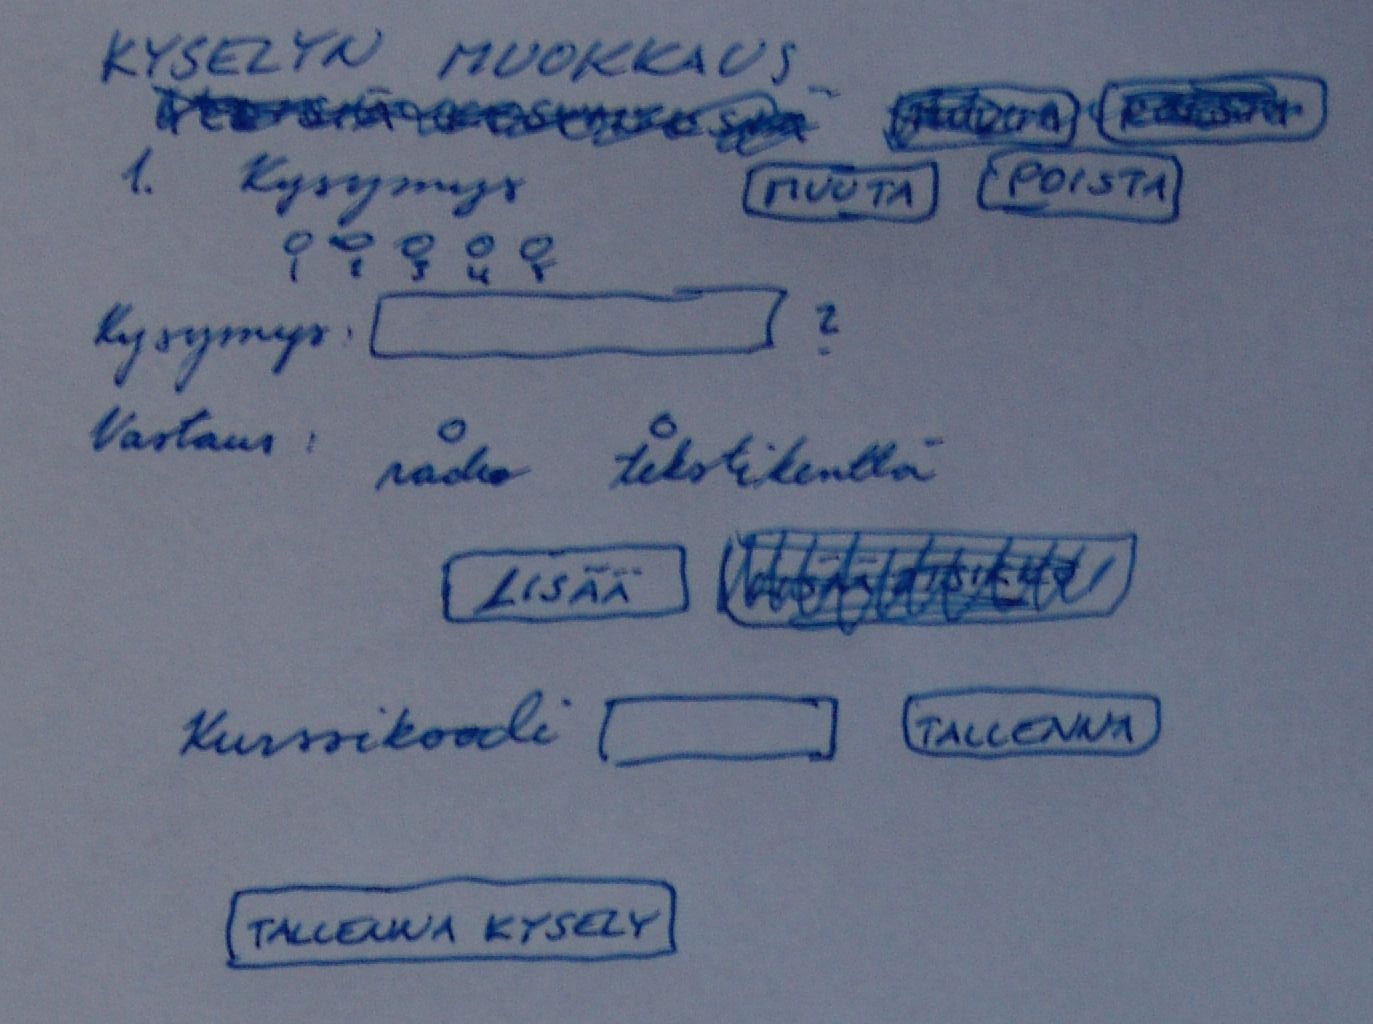 KYSELYN MUOKKAUS
1. Kysymys MUUTA POISTA
1 2 3 4 5
Kysymys: ?
Vastaus: radio tekstikenttä
LISÄÄ
Kurssikoodi TALLENNA
TALLENNA KYSELY